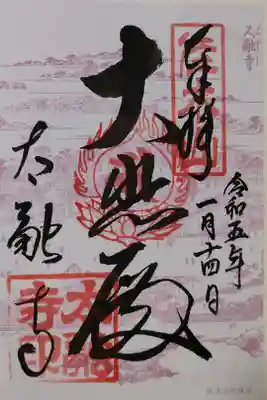 太融寺
奉拝
令和五年
一月十四日
大悲殿
太融寺
太融
寺印